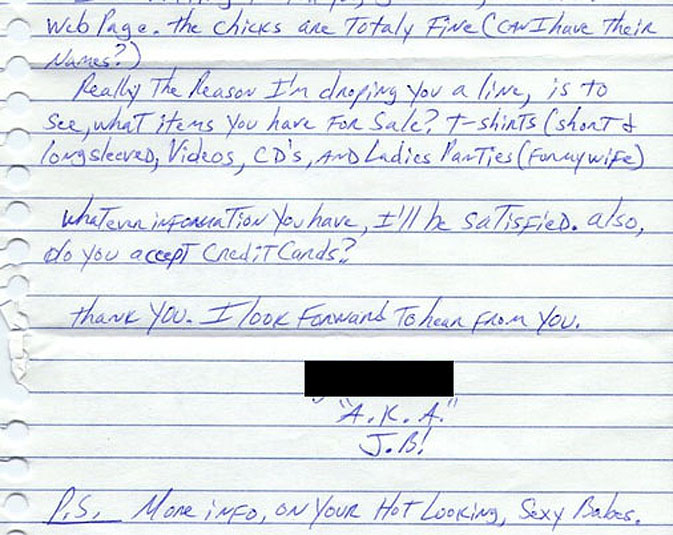 Web Page. the chicks are Totaly Fine (CAN I have Their
Names?)
Really The Reason I'm droping You a line, is to
See, what items You have For Sale? T-shirts (short &
longsleeved, Videos, CD's, AND Ladies Panties (For my wife)
whatever information You have, I'll be satisfied. also,
do you accept Credit Cards?
thank YOU. I look Forward To hear From YOU.
"A.K.A."
J.B!
P.S. More info, ON YOUR Hot Looking, Sexy Babes.